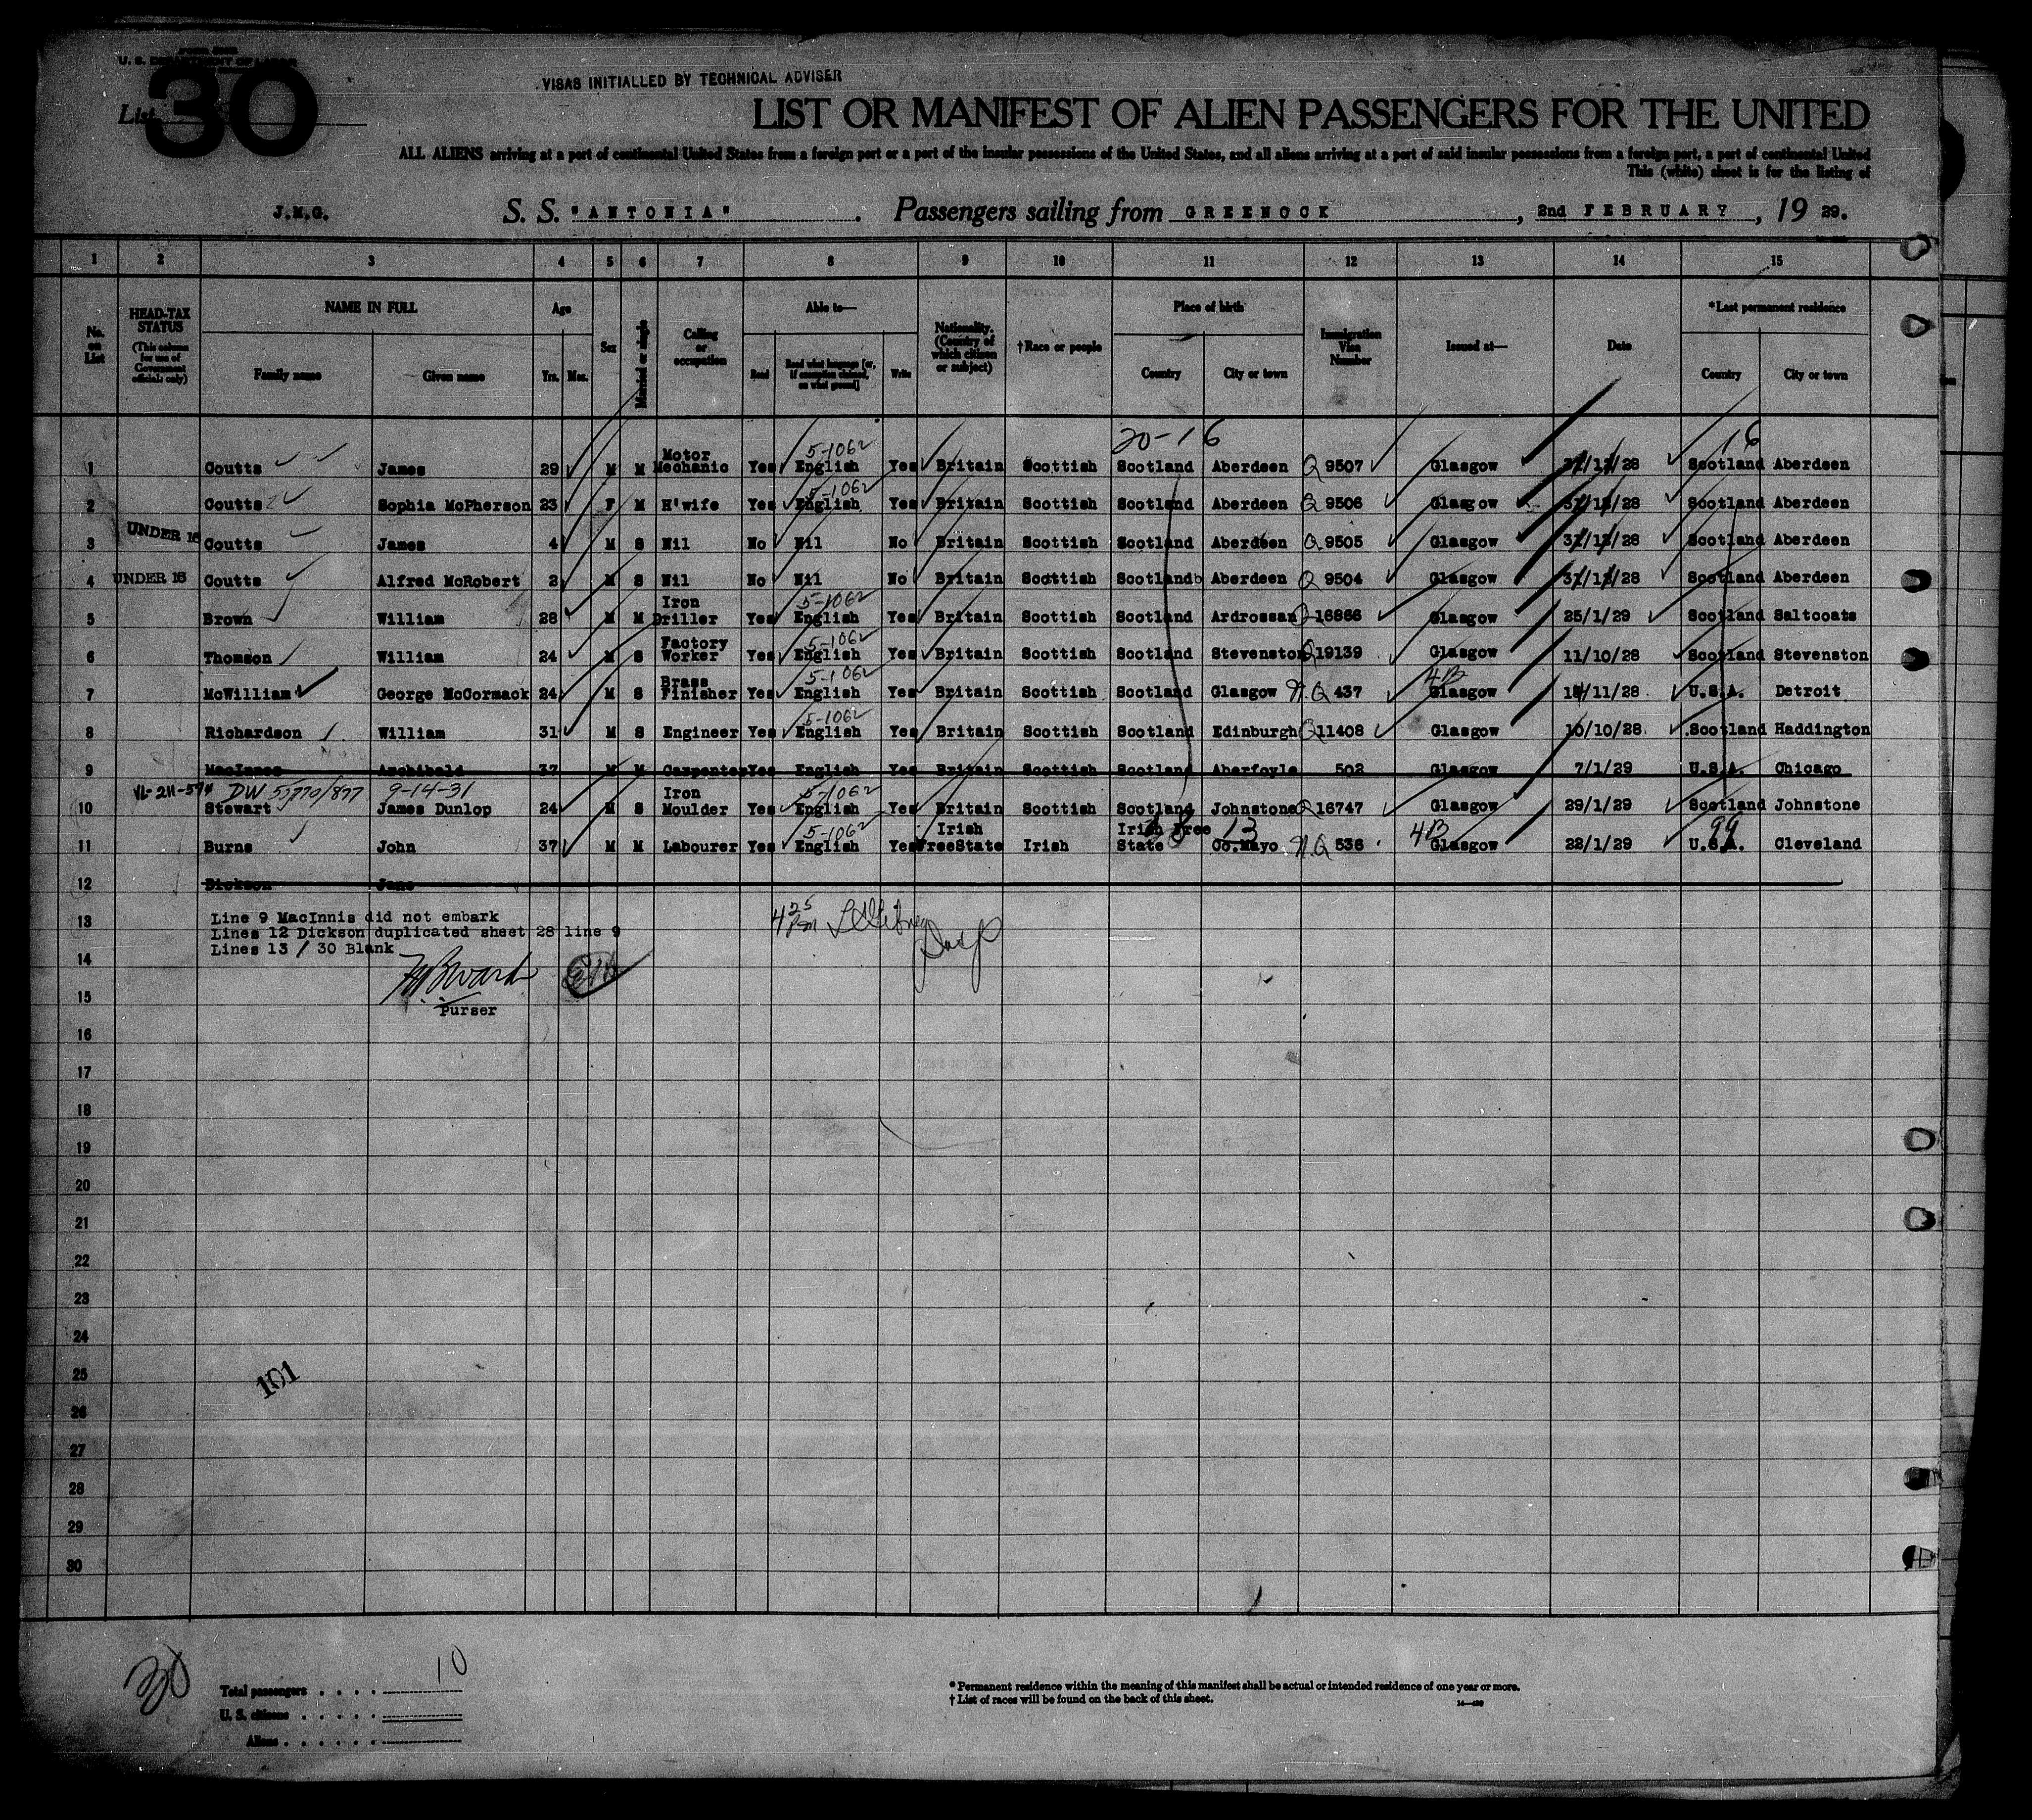 U. S. DEPARTMENT OF LABOR
List 30
VISAS INITIALLED BY TECHNICAL ADVISER
LIST OR MANIFEST OF ALIEN PASSENGERS FOR THE UNITED
ALL ALIENS arriving at a port of continental United States from a foreign port or a port of the insular possessions of the United States, and all aliens arriving at a port of said insular possessions from a foreign port, a port of continental United
This (white) sheet is for the listing of
J.M.G. S. S. "ANTONIA" . Passengers sailing from GREENOCK , 2nd FEBRUARY , 19 29.
1 2 3 4 5 6 7 8 9 10 11 12 13 14 15
No. on List HEAD-TAX STATUS (This column for use of Government officials only) NAME IN FULL Family name Given name Age Yrs. Mos. Sex Married or single Calling or occupation Able to— Read Read what language [or, if exemption claimed, on what ground] Write Nationality. (Country of which citizen or subject) †Race or people Place of birth Country City or town Immigration Visa Number Issued at— Date *Last permanent residence Country City or town
20-16 16
1 Coutts James 29 M M Motor Mechanic Yes 5-1062 English Yes Britain Scottish Scotland Aberdeen Q 9507 Glasgow /28 Scotland Aberdeen
2 Coutts Sophia McPherson 23 F M H'wife Yes 5-1062 English Yes Britain Scottish Scotland Aberdeen Q 9506 Glasgow 31/12/28 Scotland Aberdeen
3 UNDER 16 Coutts James 4 M S Nil No Nil No Britain Scottish Scotland Aberdeen Q 9505 Glasgow 31/12/28 Scotland Aberdeen
4 UNDER 16 Coutts Alfred McRobert 2 M S Nil No Nil No Britain Scottish Scotland Aberdeen Q 9504 Glasgow 31/12/28 Scotland Aberdeen
5 Brown William 28 M M Iron Driller Yes 5-1062 English Yes Britain Scottish Scotland Ardrossan Q 16866 Glasgow 25/1/29 Scotland Saltcoats
6 Thomson William 24 M S Factory Worker Yes 5-1062 English Yes Britain Scottish Scotland Stevenston Q 19139 Glasgow 11/10/28 Scotland Stevenston
7 McWilliam George McCormack 24 M S Brass Finisher Yes 5-1062 English Yes Britain Scottish Scotland Glasgow N.Q 437 4B Glasgow /11/28 U.S.A. Detroit
8 Richardson William 31 M S Engineer Yes 5-1062 English Yes Britain Scottish Scotland Edinburgh Q 11408 Glasgow 10/10/28 Scotland Haddington
9 MacInnes Archibald 37 M M Carpenter Yes English Yes Britain Scottish Scotland Aberfoyle 502 Glasgow 7/1/29 U.S.A. Chicago
DW 9-14-31
10 Stewart James Dunlop 24 M S Iron Moulder Yes 5-1062 English Yes Britain Scottish Scotland Johnstone Q 16747 Glasgow 29/1/29 Scotland Johnstone
11 Burns John 37 M M Labourer Yes 5-1062 English Yes Irish FreeState Irish Irish Free State 13 Co.Mayo N.Q 536 4B Glasgow 22/1/29 99 U.S.A. Cleveland
12 Dickson Jane
13 Line 9 MacInnis did not embark
Lines 12 Dickson duplicated sheet 28 line 9
Lines 13 / 30 Blank
14
15 Purser
16
17
18
19
20
21
22
23
24
25 101
26
27
28
29
30
30
Total passengers . . . . 10
U. S. citizens . . . . .
Aliens . . . . . .
* Permanent residence within the meaning of this manifest shall be actual or intended residence of one year or more.
† List of races will be found on the back of this sheet.